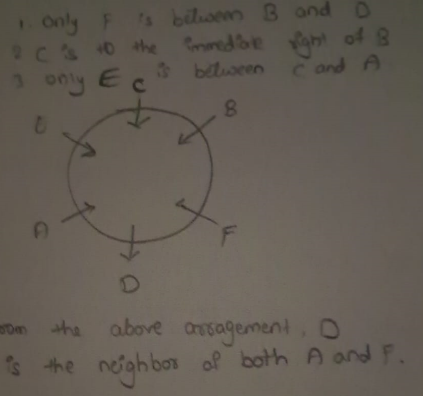 1. only F is between B and D
2 C is to the immediate right of B
3 only E is between C and A
C
B
A
F
D
the above arragement. D
is the neighbor of both A and F.